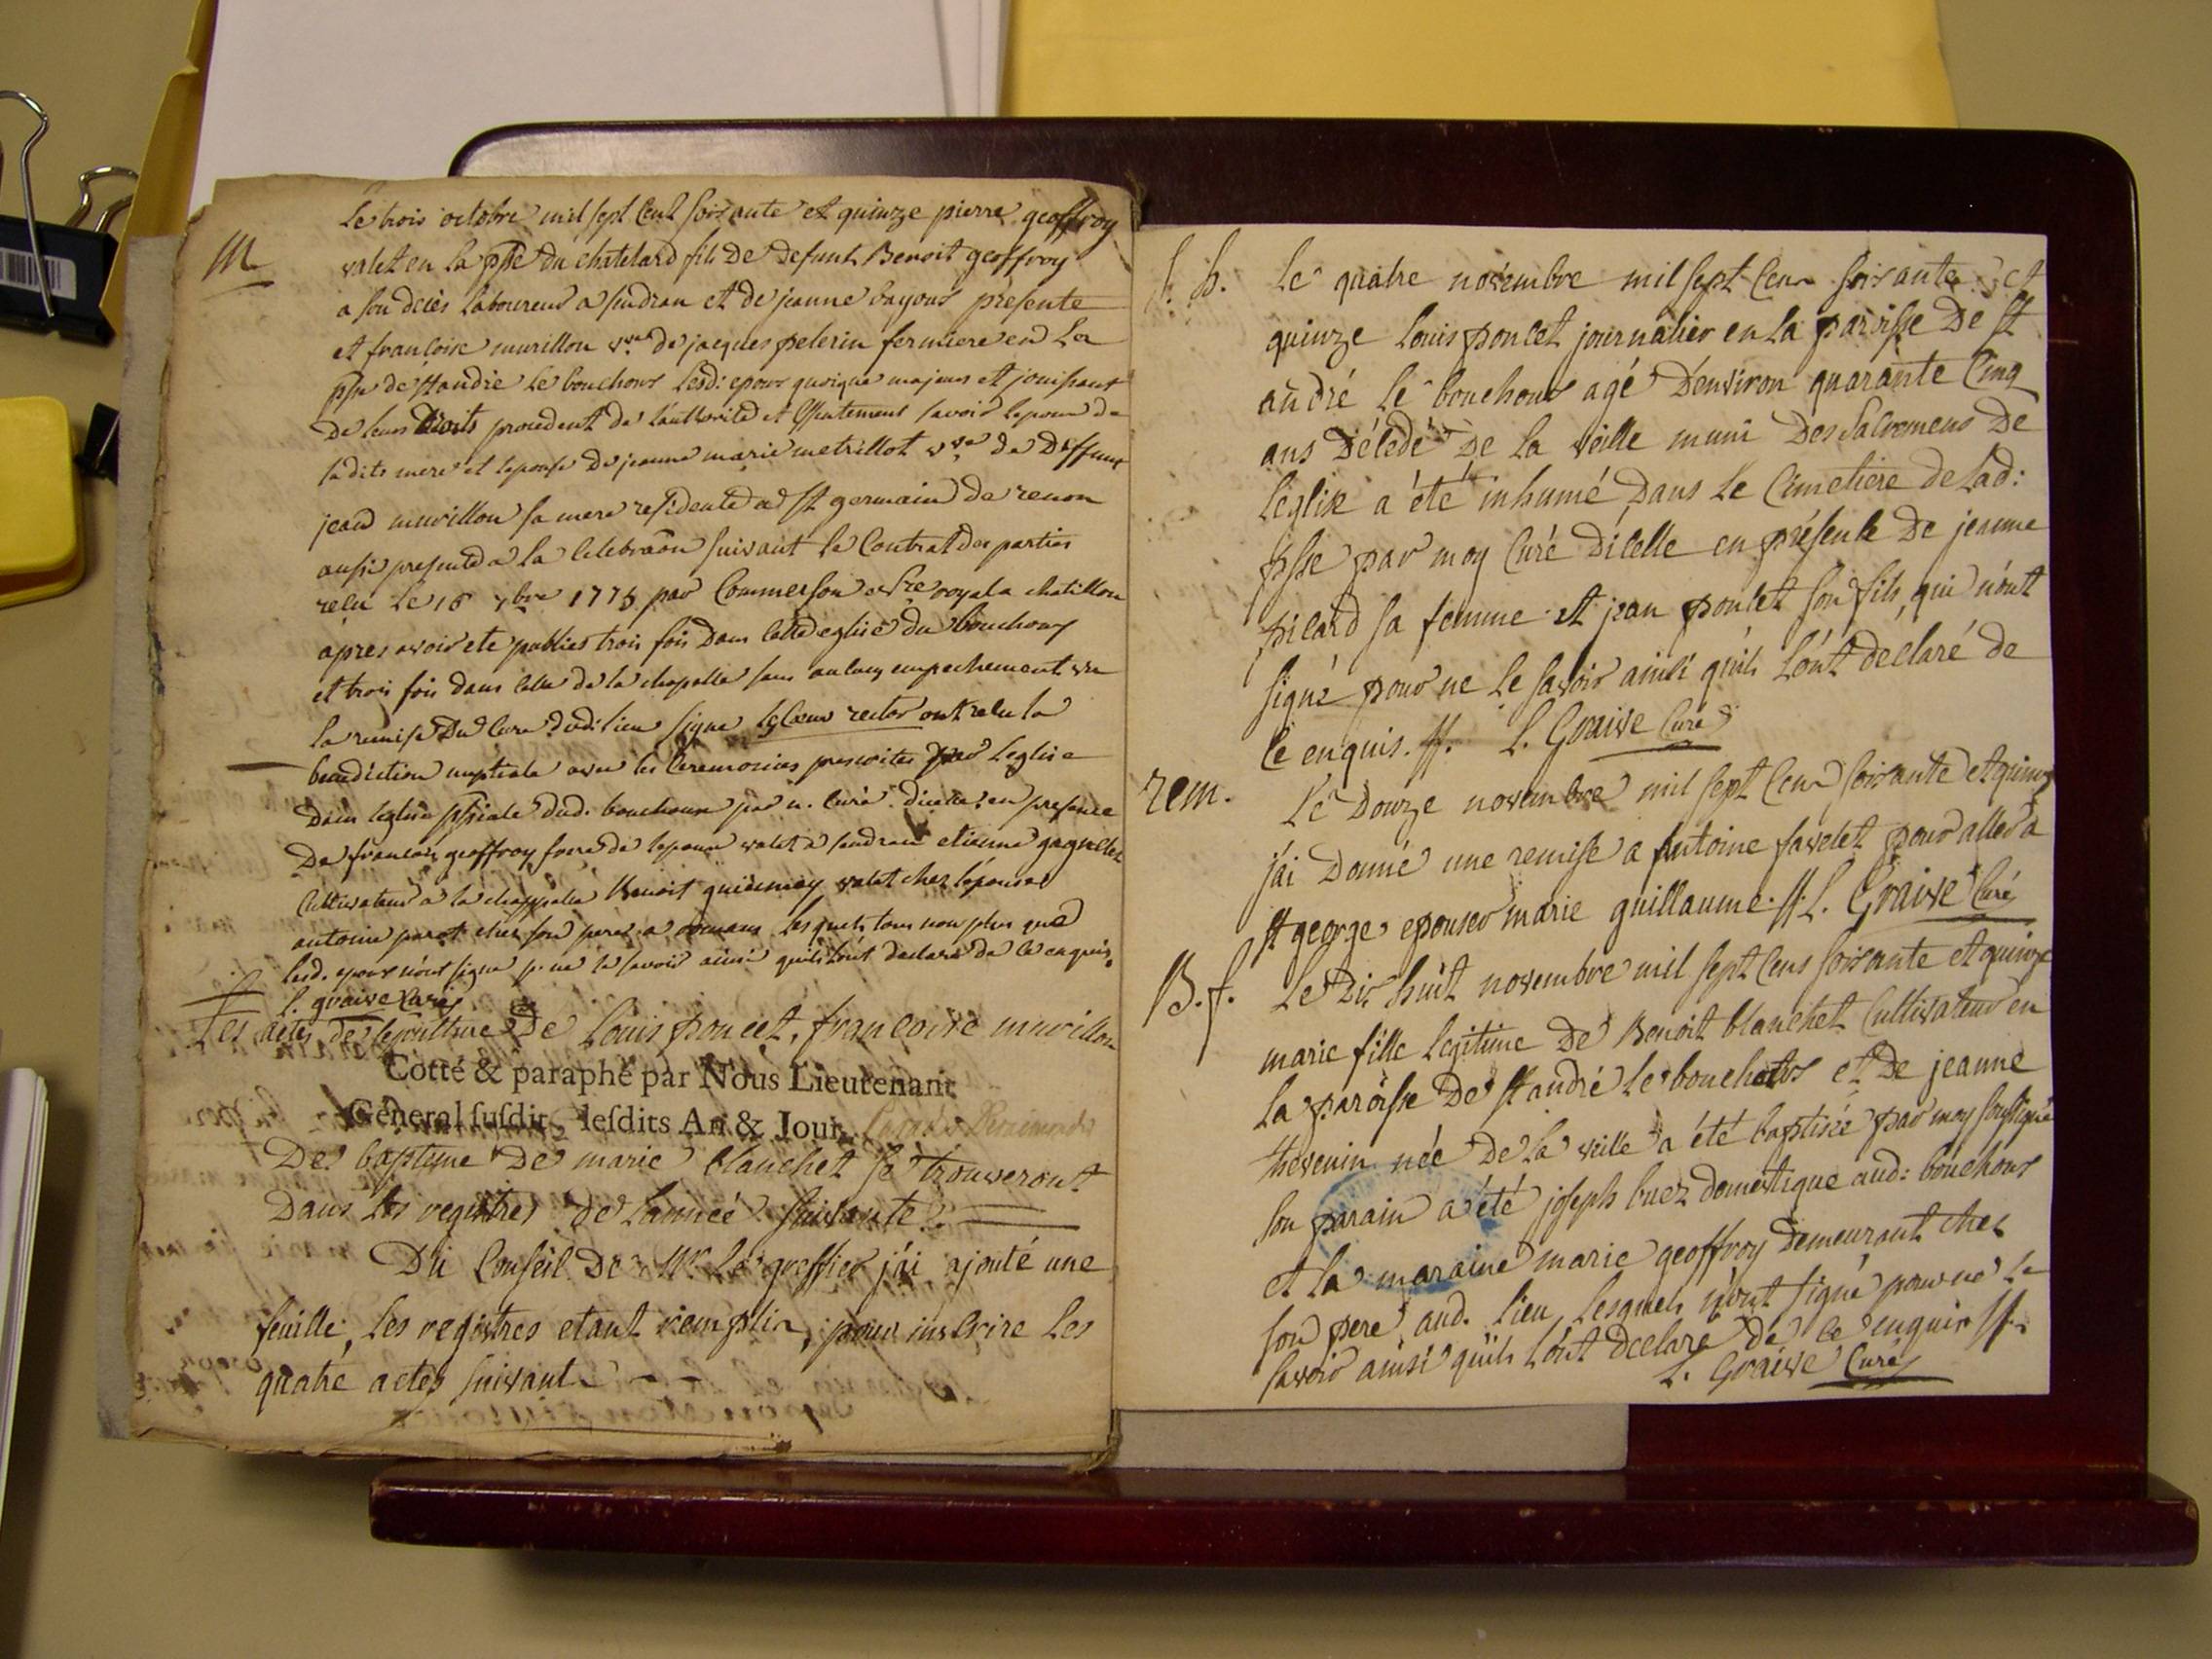 M
Le trois octobre mil sept cent soixante et quinze pierre geoffroy
valet en la psse du chatelard fils de defunt Benoit geoffroy
a son deces laboureur a sandran et de jeanne bayous presente
et francoise murillon vve de jacques pelerin fermiere en la
psse de st andré le bouchoux lesd: epoux quoique majeurs et jouissant
de leurs droits procedent de l'authorité et savoir lepoux de
sadite mere et lepouse de jeanne marie metrillot vve de deffunt
jean murillon sa mere residente a st germain de renon
aussi presente a la celebraõn suivant le contrat des parties
recu le 16 7bre 1775 par Commerson nre royal a chatillon
apres avoir ete publies trois fois dans cette eglise du bouchoux
et trois fois dans celle de la chapelle sans aucun empechement vu
la remise du curé dud: lieu signe rector ont recu la
benediction nuptiale avec les ceremonies prescrites par leglise
dans leglise pssiale dud. bouchoux par n. curé d'icelle, en presence
de francois geoffroy frere de lepoux valet a sandran etienne gagnolet
cultivateur a la chappelle Benoit valet chez lépouse
antoine perot chez son pere a romans lesquels tous non plus que
lesd. epoux n'ont signé p. ne le savoir ainsi quils l'ont declaré de ce enquis.
l. graive curé
Les actes de sepulture de Louis poncet, francoise murillon
Cotté & paraphé par Nous Lieutenant
Géneral susdit, lesdits An & Jour
De baptême de marie blanchet se trouveront
Dans les registres de l'année suivante.
Du Conseil de Mr Le greffier j'ai ajouté une
feuille, les registres etant remplis, pour inscrire les
quatre actes suivant
S. h. Le quatre novembre mil sept cent soixante et
quinze louis poncet journalier en la paroisse de st
andré le bouchoux agé d'environ quarante cinq
ans décédé de la veille muni des sacremens de
l'église a été inhumé dans le cimetiere de lad:
psse par moy curé d'icelle en présence de jeanne
picard sa femme et jean poncet son fils, qui n'ont
signé pour ne le savoir ainsi quils l'ont déclaré de
ce enquis. ff. L. Graive Curé
rem. Le Douze novembre mil sept cent soixante et quinze
j'ai donné une remise a antoine favelet pour aller a
st george epouser marie guillaume. ff. L. Graive Curé
B. f. Le Dix huit novembre mil sept cens soixante et quinze
marie fille legitime de Benoit blanchet cultivateur en
la paroisse de st andré le bouchoux et de jeanne
thevenin née de la veille a été baptisée par moy soussigné
son parain a été joseph buez domestique aud: bouchoux
et la maraine marie geoffroy demeurant chez
son pere aud. lieu lesquels n'ont signé pour ne le
savoir ainsi quils l'ont declaré de ce enquis ff.
L. Graive Curé